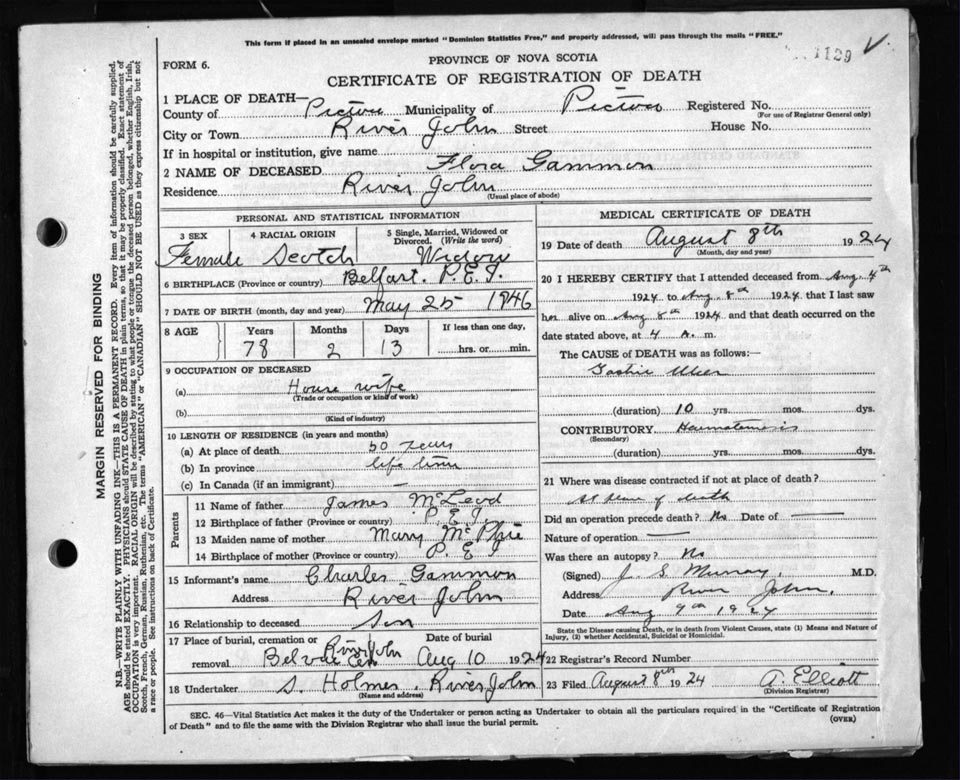 This form if placed in an unsealed envelope marked "Dominion Statistics Free," and properly addressed, will pass through the mails "FREE."
1129 V
FORM 6.
PROVINCE OF NOVA SCOTIA
CERTIFICATE OF REGISTRATION OF DEATH
1 PLACE OF DEATH—
County of Pictou Municipality of Pictou Registered No.
(For use of Registrar General only)
City or Town River John Street House No.
If in hospital or institution, give name
2 NAME OF DECEASED Flora Gammon
Residence River John
(Usual place of abode)
PERSONAL AND STATISTICAL INFORMATION
3 SEX 4 RACIAL ORIGIN 5 Single, Married, Widowed or Divorced. (Write the word)
Female Scotch Widow
6 BIRTHPLACE (Province or country) Belfast. P.E.I.
7 DATE OF BIRTH (month, day and year) May 25 1846
8 AGE Years Months Days If less than one day,
78 2 13 hrs. or min.
9 OCCUPATION OF DECEASED
(a) House wife
(Trade or occupation or kind of work)
(b)
(Kind of industry)
10 LENGTH OF RESIDENCE (in years and months)
(a) At place of death years
(b) In province life time
(c) In Canada (if an immigrant) —
Parents
11 Name of father James McLeod
12 Birthplace of father (Province or country) P.E.I
13 Maiden name of mother Mary
14 Birthplace of mother (Province or country) P.E.
15 Informant's name Charles Gammon
Address River John
16 Relationship to deceased Son
17 Place of burial, cremation or removal River John Date of burial
Cem Aug 10 1924
18 Undertaker S. Holmes River John
(Name and address)
MEDICAL CERTIFICATE OF DEATH
19 Date of death August 8th 1924
(Month, day and year)
20 I HEREBY CERTIFY that I attended deceased from Aug 4th
1924 to Aug. 8th 1924 that I last saw
her alive on Aug 8th 1924 and that death occurred on the
date stated above, at 4 A. m.
The CAUSE of DEATH was as follows:—
Gastric Ulcer
(duration) 10 yrs. mos. dys.
CONTRIBUTORY Haematemesis
(Secondary)
(duration) yrs. mos. dys.
21 Where was disease contracted if not at place of death?
At place of death
Did an operation precede death? No Date of —
Nature of operation —
Was there an autopsy? No
(Signed) J. S. Murray, M.D.
Address River John,
Date Aug 9th 1924
State the Disease causing Death, or in death from Violent Causes, state (1) Means and Nature of
Injury, (2) whether Accidental, Suicidal or Homicidal.
22 Registrar's Record Number
23 Filed August 8th 1924 A Elliott
(Division Registrar)
SEC. 46—Vital Statistics Act makes it the duty of the Undertaker or person acting as Undertaker to obtain all the particulars required in the "Certificate of Registration
of Death" and to file the same with the Division Registrar who shall issue the burial permit.
(OVER)
MARGIN RESERVED FOR BINDING
N.B.—WRITE PLAINLY WITH UNFADING INK—THIS IS A PERMANENT RECORD. Every item of information should be carefully supplied.
AGE should be stated EXACTLY. PHYSICIANS should STATE CAUSE OF DEATH in plain terms, so that it may be properly classified. Exact statement of
OCCUPATION is very important. RACIAL ORIGIN will be described by stating to what people or tongue the deceased person belonged, whether English, Irish,
Scotch, French, German, Russian, Ruthenian, etc. The terms "AMERICAN" or "CANADIAN" SHOULD NOT BE USED as they express citizenship but not
a race or people. See instructions on back of Certificate.